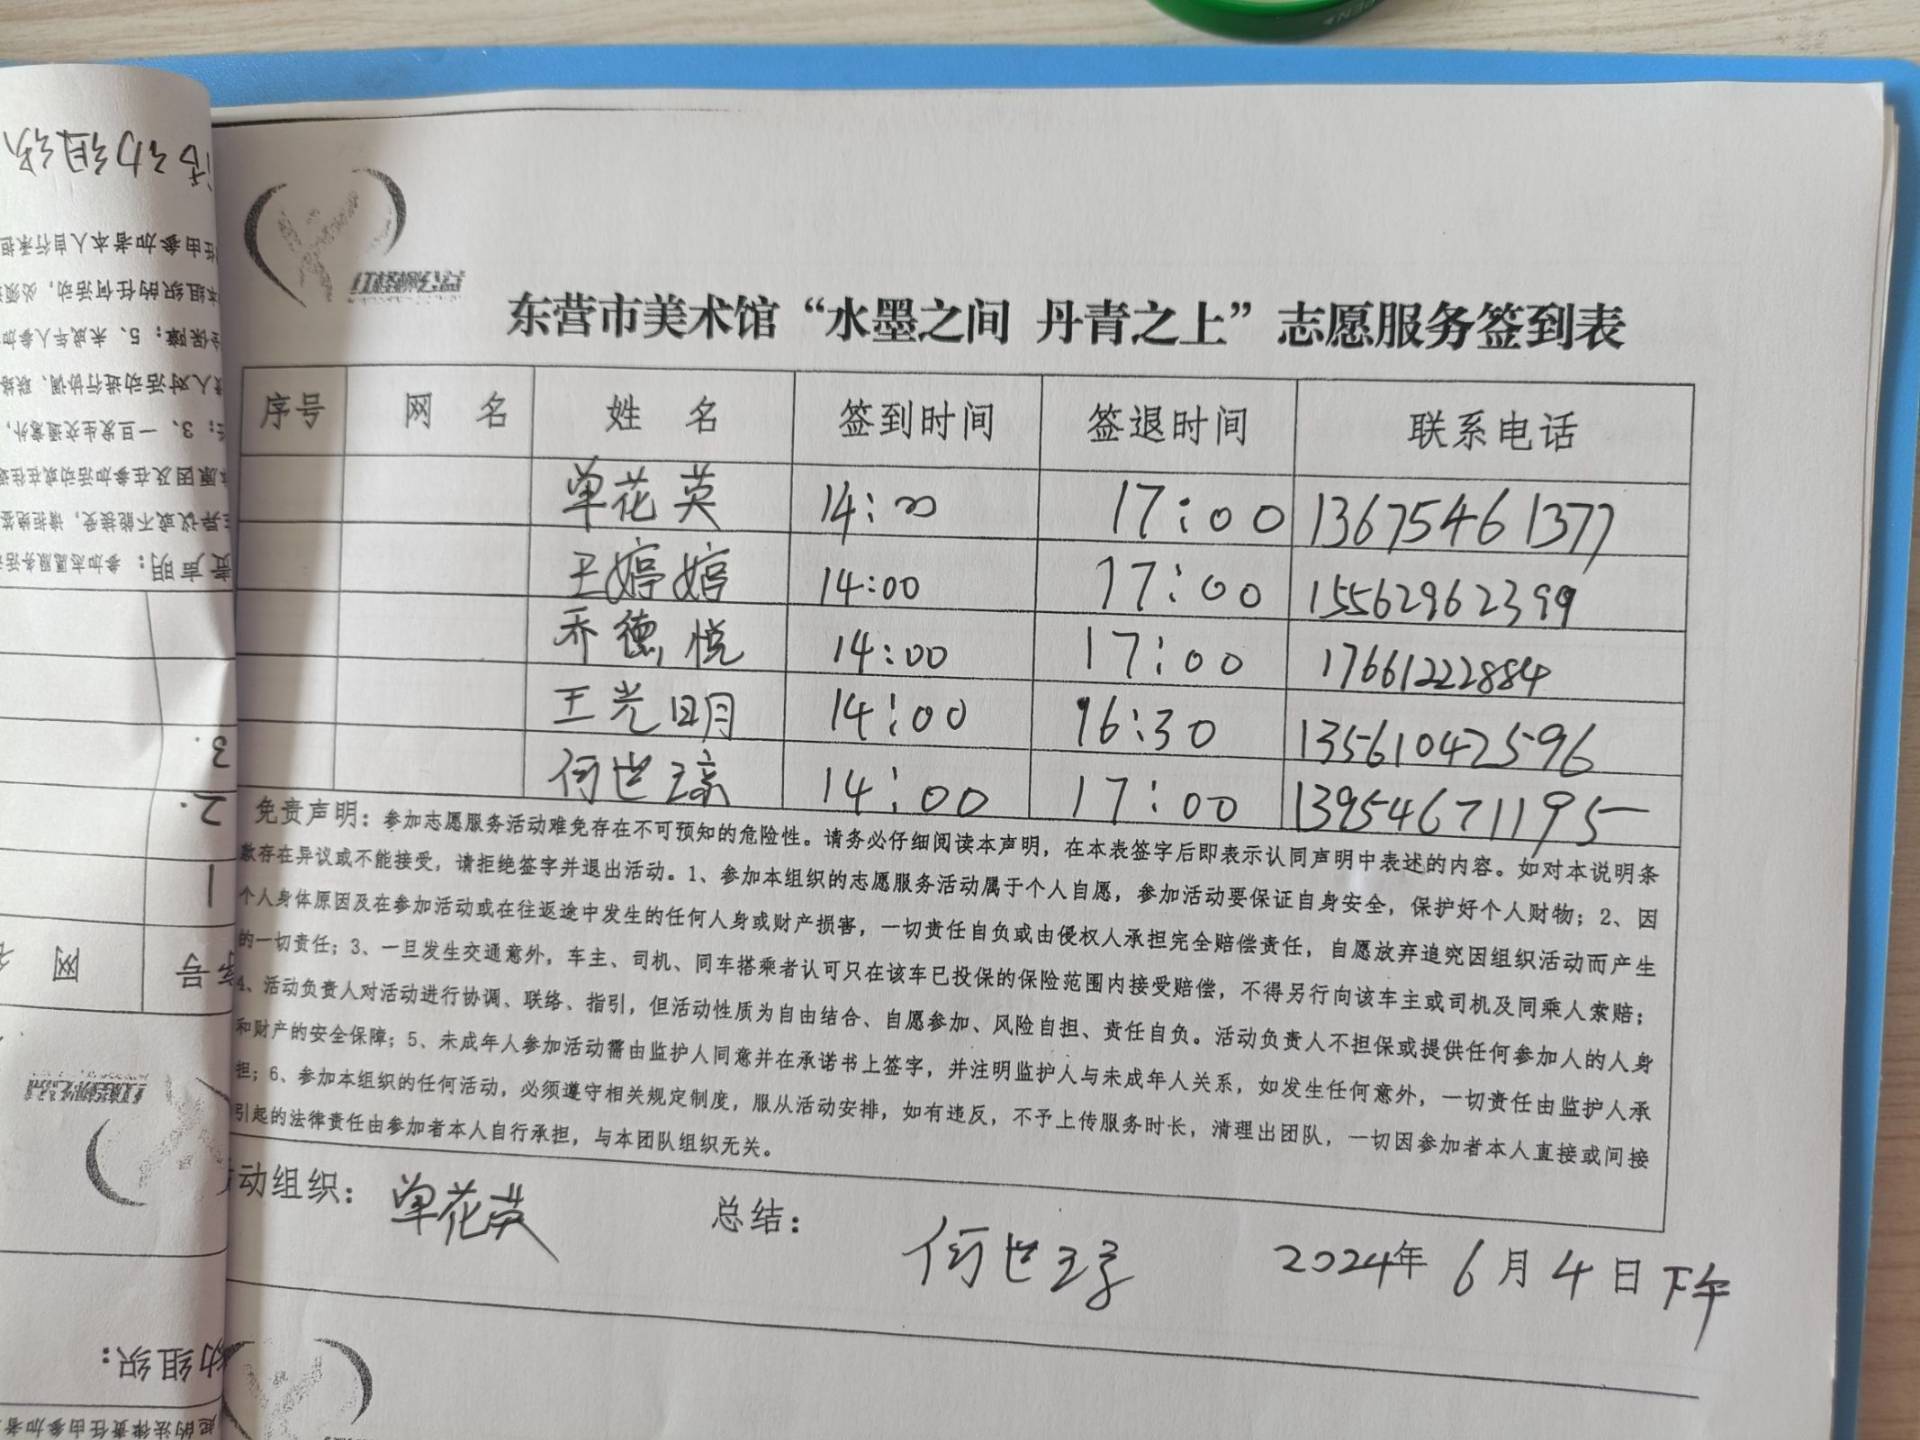 红丝带公益
东营市美术馆“水墨之间 丹青之上”志愿服务签到表
序号 网 名 姓 名 签到时间 签退时间 联系电话
单花英 14:00 17:00 13675461377
王婷婷 14:00 17:00 15562962399
乔德悦 14:00 17:00 17661222884
王光明 14:00 16:30 13561042596
何世 14:00 17:00 13954671195
免责声明：参加志愿服务活动难免存在不可预知的危险性。请务必仔细阅读本声明，在本表签字后即表示认同声明中表述的内容。如对本说明条
款存在异议或不能接受，请拒绝签字并退出活动。1、参加本组织的志愿服务活动属于个人自愿，参加活动要保证自身安全，保护好个人财物；2、因
个人身体原因及在参加活动或在往返途中发生的任何人身或财产损害，一切责任自负或由侵权人承担完全赔偿责任，自愿放弃追究因组织活动而产生
的一切责任；3、一旦发生交通意外，车主、司机、同车搭乘者认可只在该车已投保的保险范围内接受赔偿，不得另行向该车主或司机及同乘人索赔；
4、活动负责人对活动进行协调、联络、指引，但活动性质为自由结合、自愿参加、风险自担、责任自负。活动负责人不担保或提供任何参加人的人身
和财产的安全保障；5、未成年人参加活动需由监护人同意并在承诺书上签字，并注明监护人与未成年人关系，如发生任何意外，一切责任由监护人承
担；6、参加本组织的任何活动，必须遵守相关规定制度，服从活动安排，如有违反，不予上传服务时长，清理出团队，一切因参加者本人直接或间接
引起的法律责任由参加者本人自行承担，与本团队组织无关。
活动组织：单花英 总结： 何世 2024年 6月4日下午